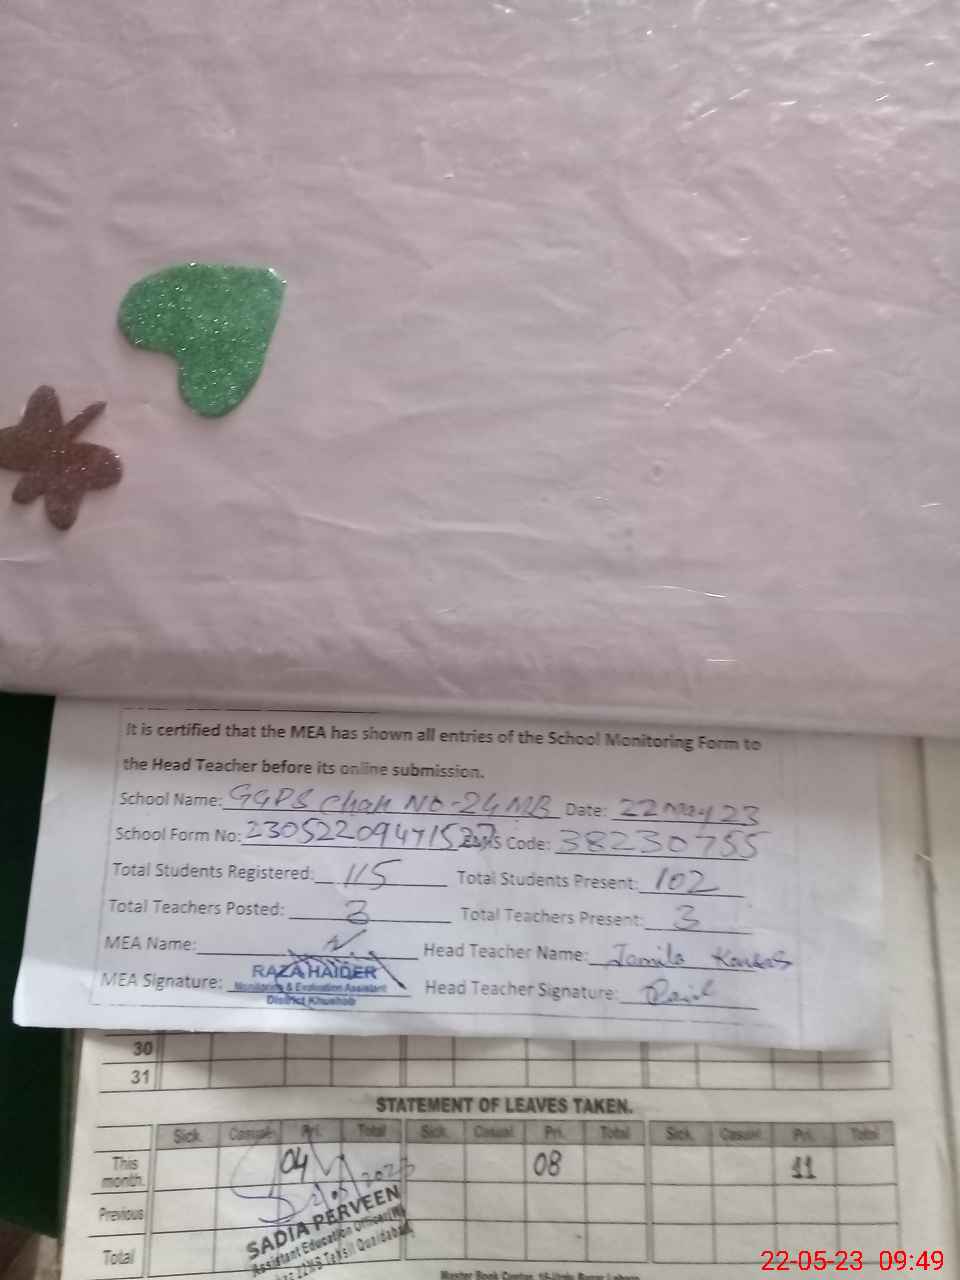 It is certified that the MEA has shown all entries of the School Monitoring Form to
the Head Teacher before its online submission.
School Name: GGPS Chak No-24 MB Date: 22 May 23
School Form No: 2305220947152 Code: 38230755
Total Students Registered: 115 Total Students Present: 102
Total Teachers Posted: 3 Total Teachers Present: 3
MEA Name: Head Teacher Name: Jamila
RAZA HAIDER
Monitoring & Evaluation Assistant
District Khushab
MEA Signature: Head Teacher Signature:
30
31
STATEMENT OF LEAVES TAKEN.
Sick. Casual Pri. Total Sick. Casual Pri. Total Sick. Casual Pri. Total
This month. 04 08 11
Previous
Total
SADIA PERVEEN
Assistant Education Officer
Tehsil Quaidabad
22-05-23 09:49